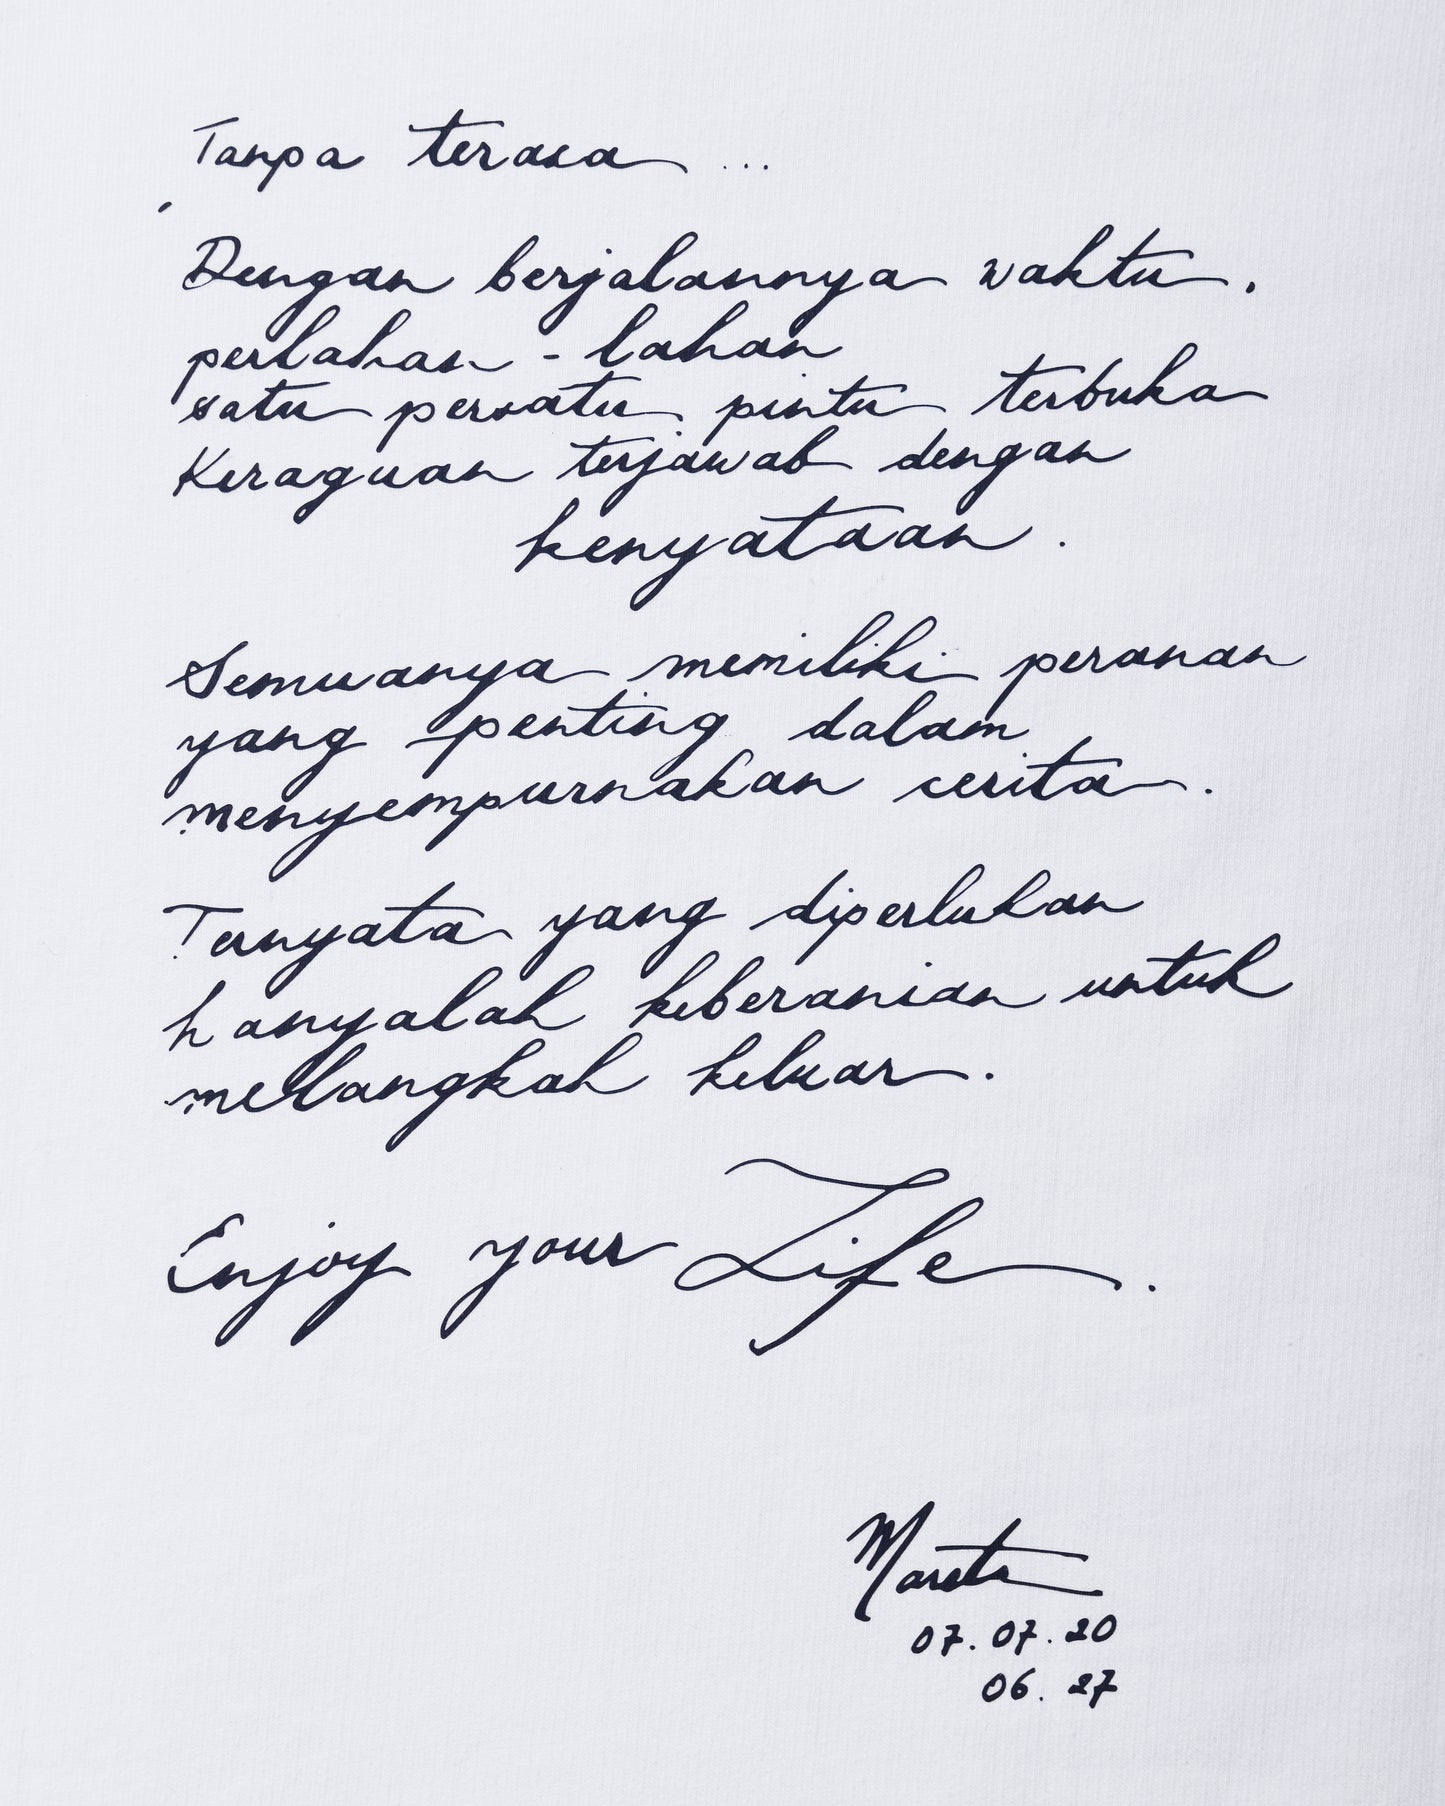 Tanpa terasa ...
Dengan berjalannya waktu.
perlahan - lahan
satu persatu pintu terbuka
Keraguan terjawab dengan
kenyataan.
Semuanya memiliki peranan
yang penting dalam
menyempurnakan cerita.
Ternyata yang diperlukan
hanyalah keberanian untuk
melangkah keluar.
Enjoy your Life.
Mareta
07.07.20
06.27